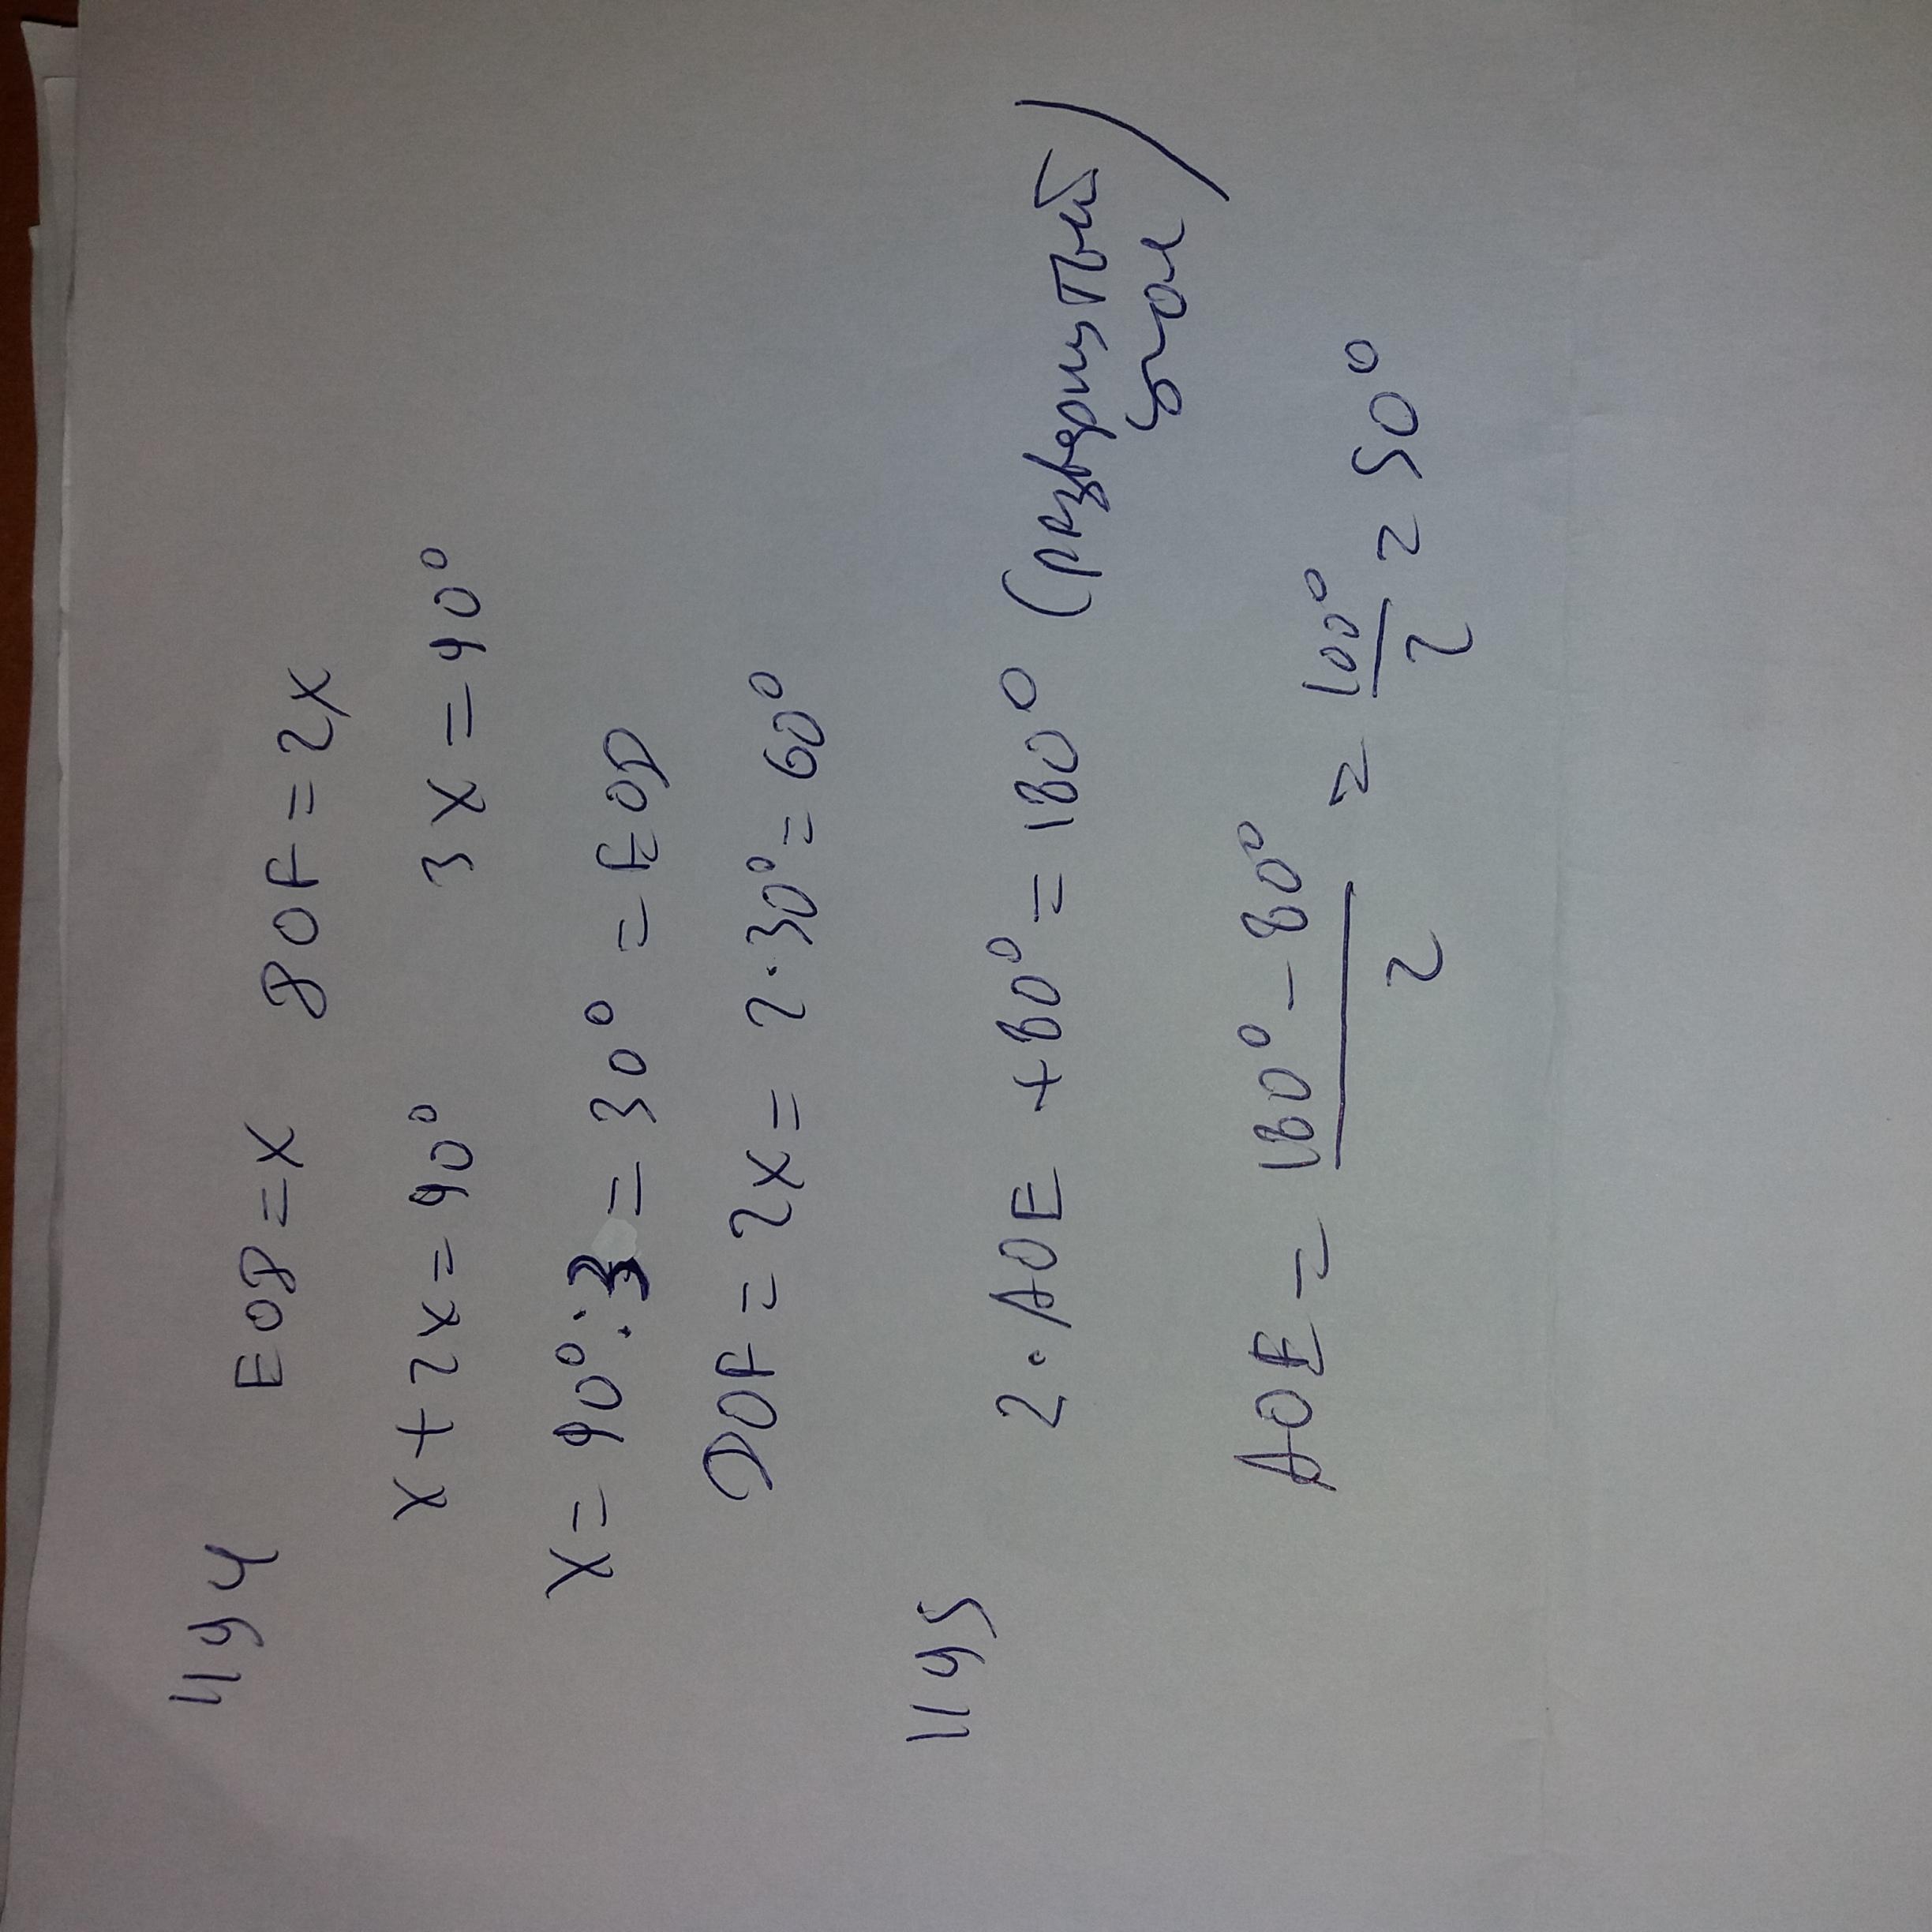 1194 EOD=x DOF=2x
x+2x=90° 3x=90°
x=90°:3=30°=EOD
DOF=2x=2·30°=60°
1195 2·AOE+80°=180° (развернутый
угол)
AOE=(180°-80°)/2=100°/2=50°